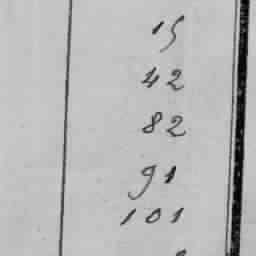 15
42
82
91
101